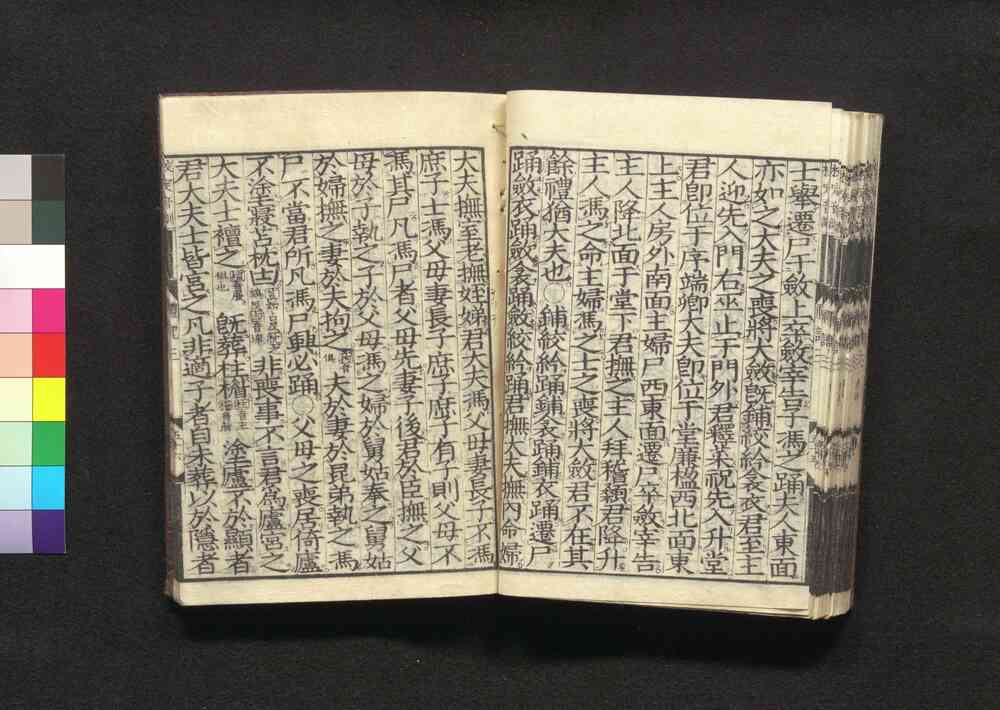 士擧遷尸于斂上卒斂宰告子馮之踊夫人東面
亦如之大夫之喪將大斂旣鋪絞紟衾衣君至主
人迎先入門右巫止于門外君釋菜祝先入升堂
君卽位于序端卿大夫卽位于堂廉楹西北面東
上主人房外南面主婦尸西東面遷尸卒斂宰告
主人降北面于堂下君撫之主人拜稽顙君降升
主人馮之命主婦馮之士之喪將大斂君不在其
餘禮猶大夫也○鋪絞紟踊鋪衾踊鋪衣踊遷尸
踊斂衣踊斂衾踊斂絞紟踊君撫大夫撫內命婦
大夫撫室老撫姪娣君大夫馮父母妻長子不馮
庶子士馮父母妻長子庶子庶子有子則父母不
馮其尸凡馮尸者父母先妻子後君於臣撫之父
母於子執之子於父母馮之婦於舅姑奉之舅姑
於婦撫之妻於夫拘之 夫於妻於昆弟執之馮
尸不當君所凡馮尸興必踊○父母之喪居倚廬
不塗寢苫枕凷 非喪事不言君爲廬宮之
大夫士襢之 旣葬柱楣 塗廬不於顯者
君大夫士皆宮之凡非適子者自未葬以於隱者